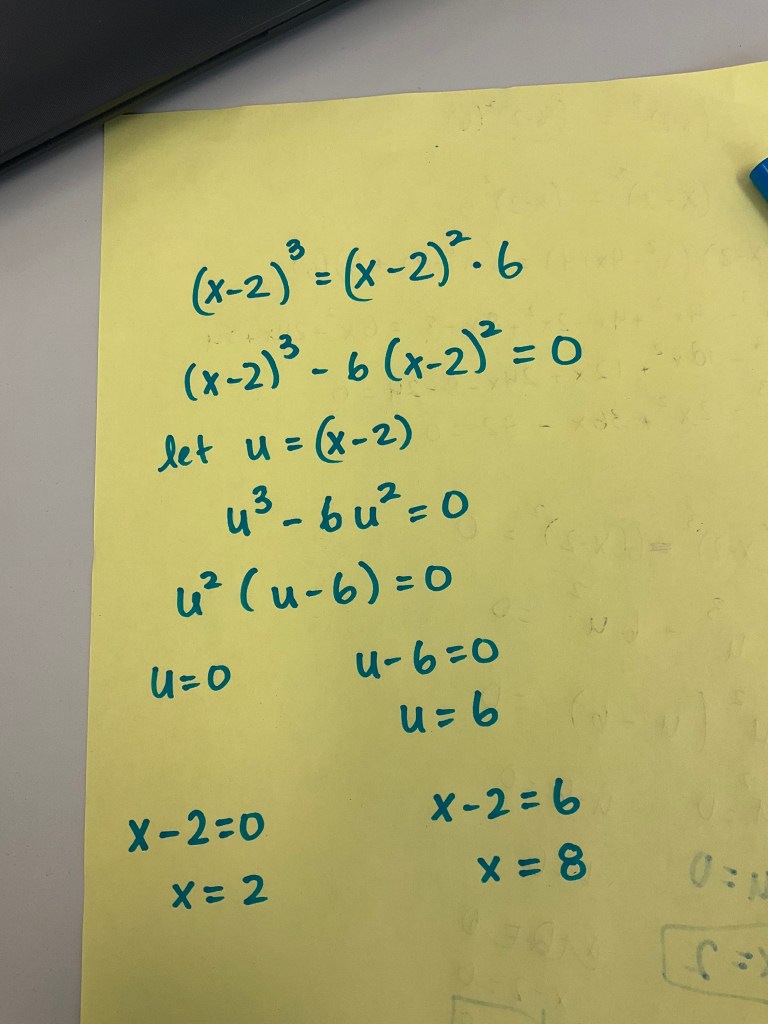 (x-2)³ = (x-2)² · 6
(x-2)³ - 6 (x-2)² = 0
let u = (x-2)
u³ - 6u² = 0
u² (u-6) = 0
u=0 u-6=0
u=6
x-2=0 x-2=6
x=2 x=8